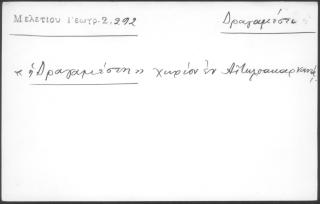 Μελετίου Γεωγρ. 2. 292 Δραγαμέστο
« ἡ Δραγαμέστη » χωρίον ἐν Αἰτωλοακαρνανίᾳ